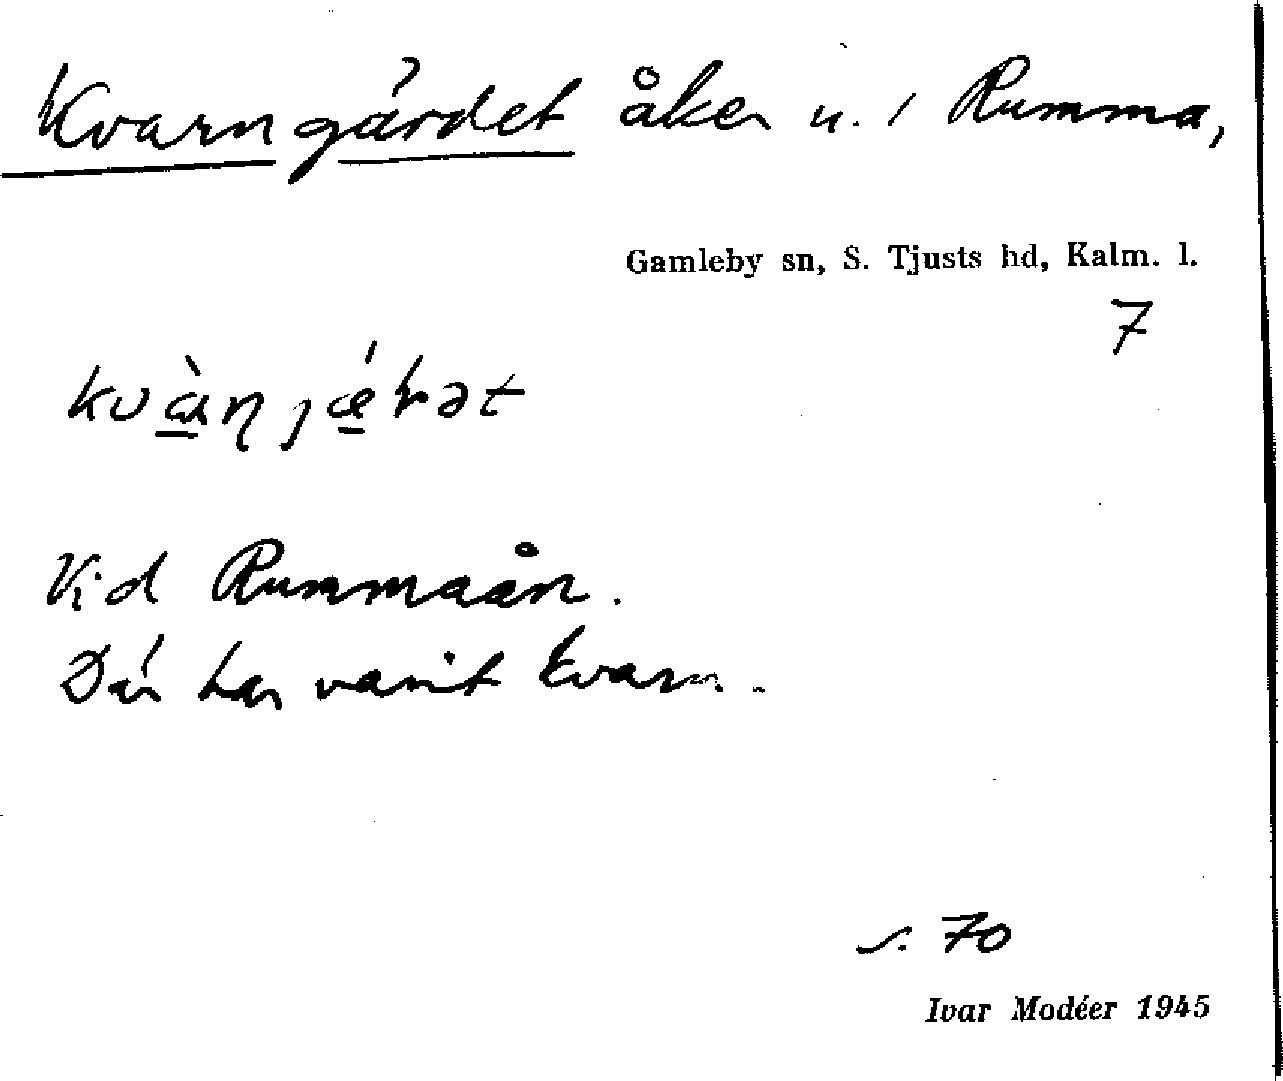 Kvarngärdet åker u. / Rumma,
Gamleby sn, S. Tjusts hd, Kalm. l.
7
Vid Rummaån.
Där har varit kvarn.
s. 70
Ivar Modéer 1945